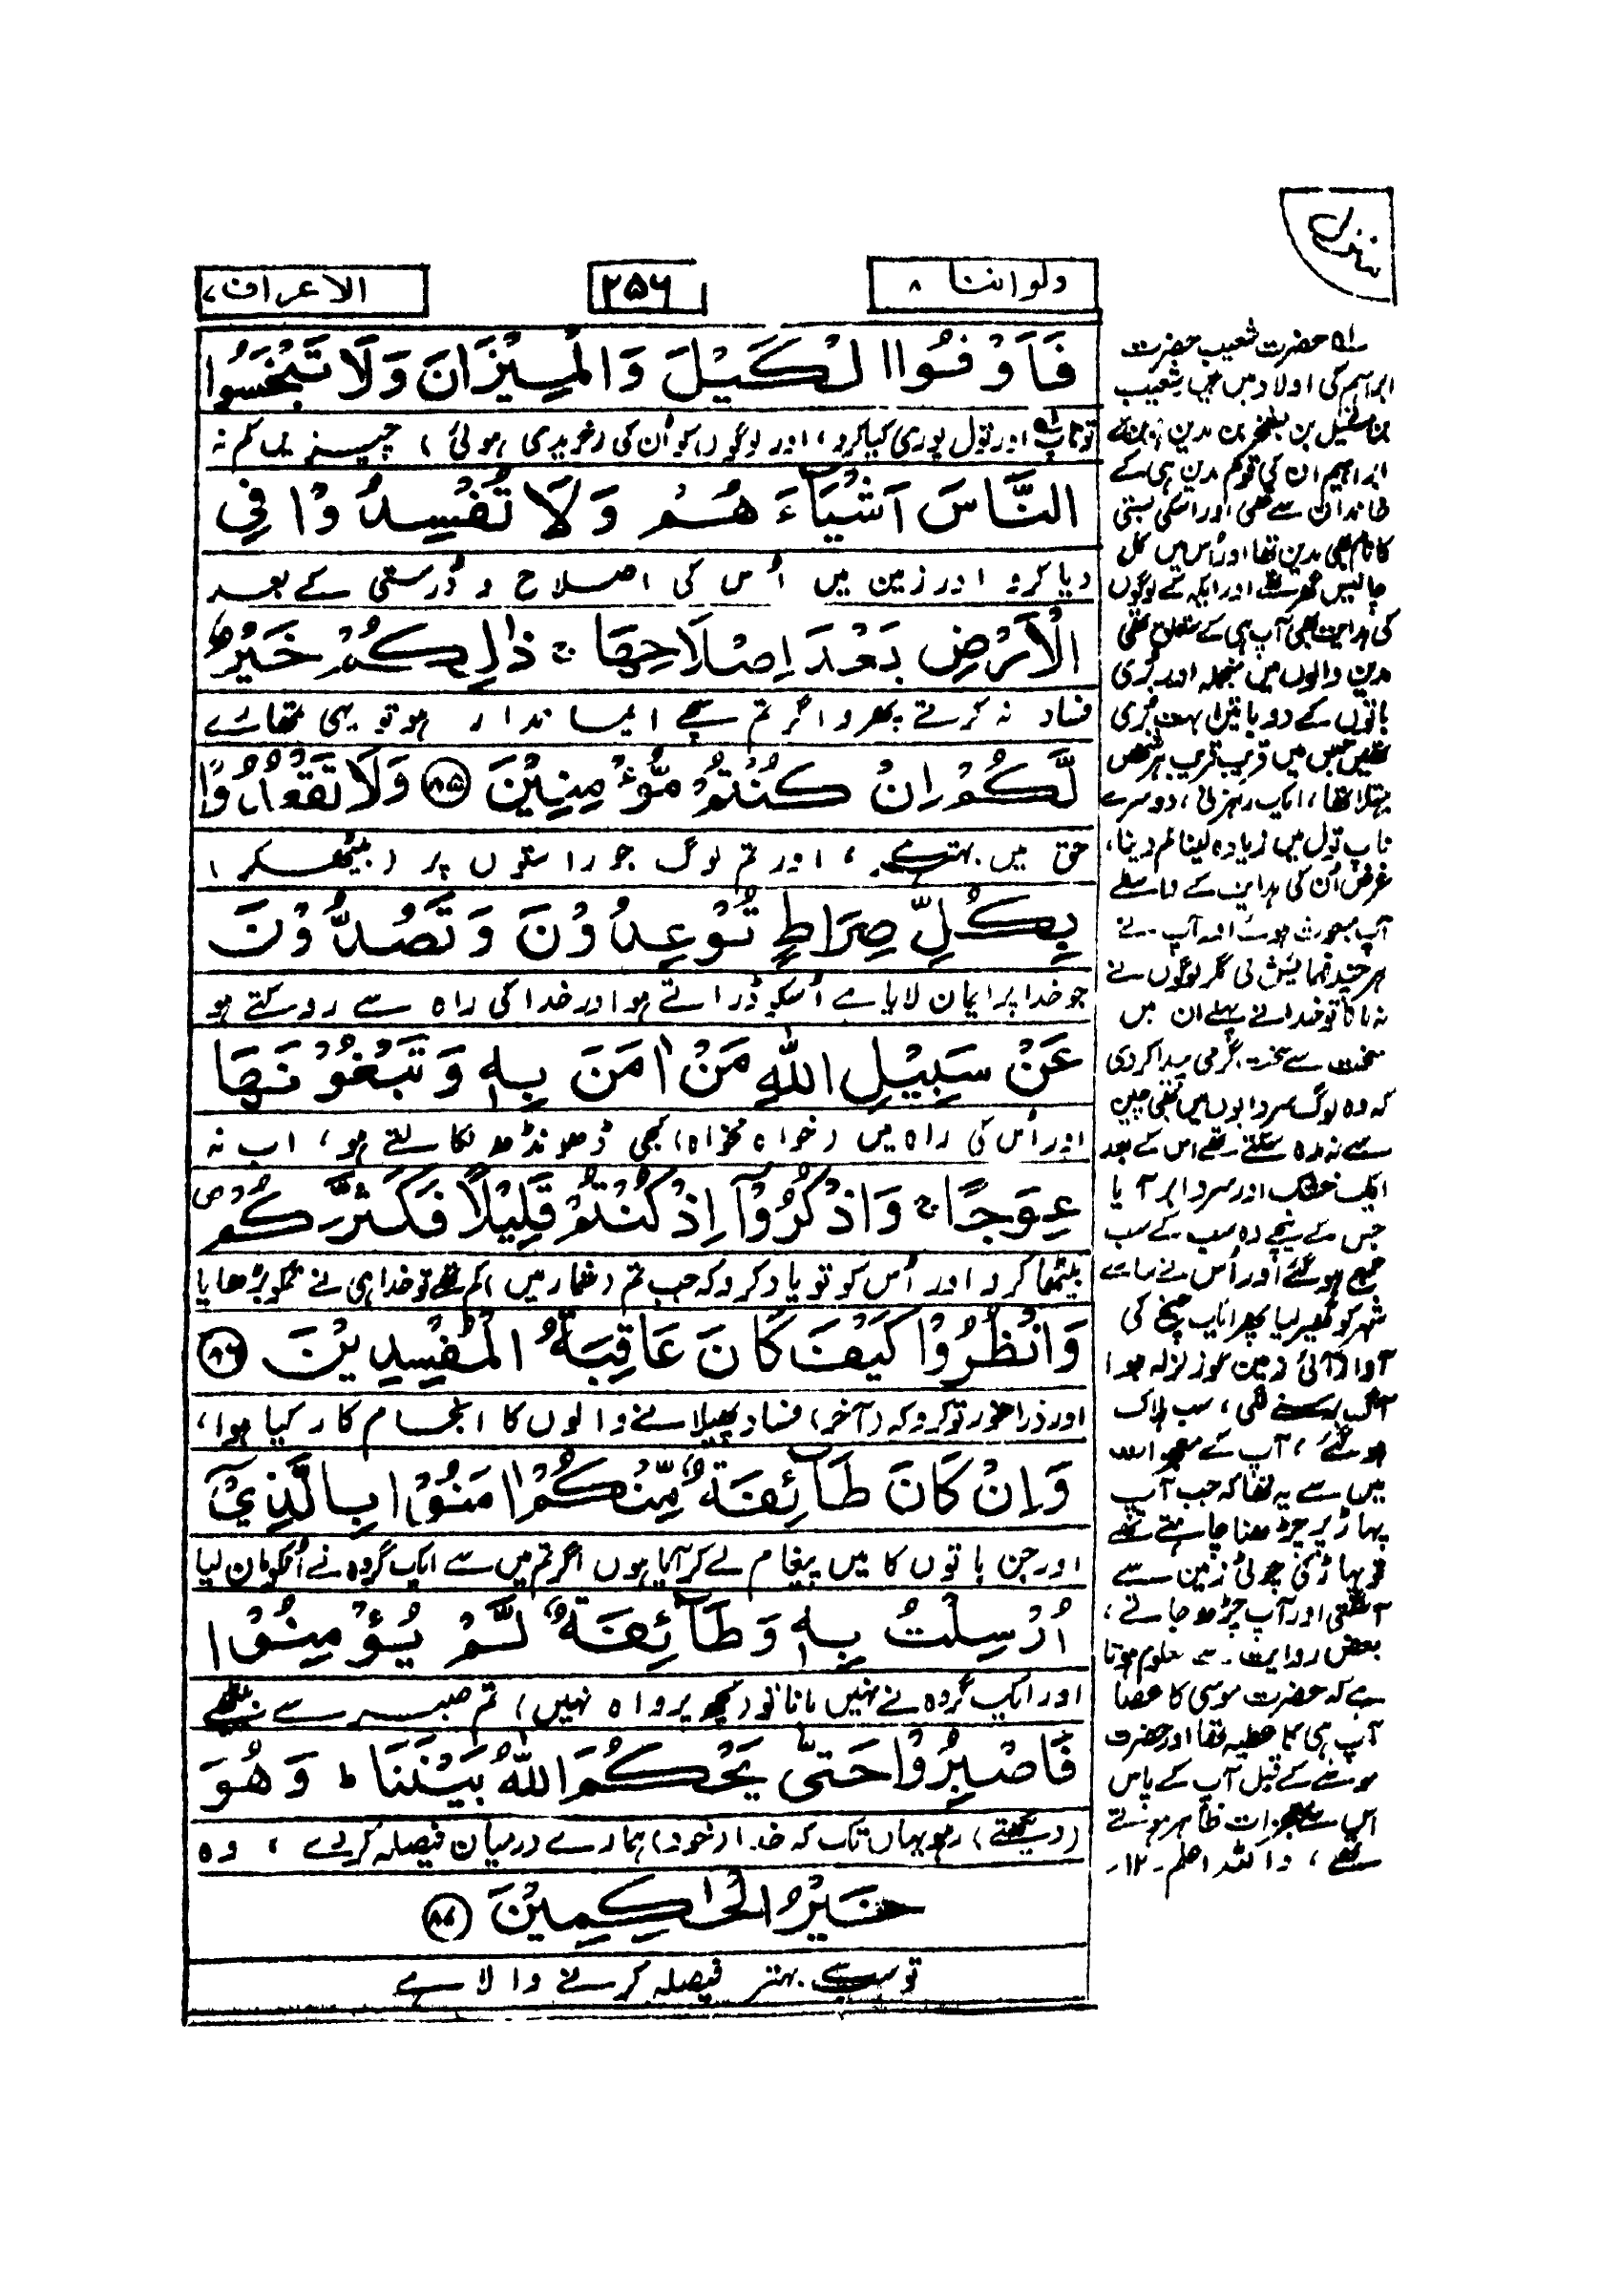 منزل
ولواننا ۸
۲۵۶
الاعراف ۷
فَاَوْفُوا الْكَيْلَ وَالْمِيْزَانَ وَلَا تَبْخَسُوا
تو ناپ اور تول پوری کیا کرو، اور لوگوں کو اُن کی (خریدی ہوئی) چیز میں کم نہ
النَّاسَ اَشْيَآءَهُمْ وَلَا تُفْسِدُوْا فِي
دیا کرو اور زمین میں اُس کی اصلاح و دُرستی کے بعد
الْاَرْضِ بَعْدَ اِصْلَاحِهَا ۚ ذٰلِكُمْ خَيْرٌ
فساد نہ کرتے پھرو اگر تم سچے ایماندار ہو تو یہی تمھارے
لَّكُمْ اِنْ كُنْتُمْ مُّؤْمِنِيْنَ ۸۵ وَلَا تَقْعُدُوْا
حق میں بہتر ہے، اور تم لوگ جو راستوں پر (بیٹھکر)
بِكُلِّ صِرَاطٍ تُوْعِدُوْنَ وَتَصُدُّوْنَ
جو خدا پر ایمان لایا ہے اُسکو ڈراتے ہو اور خدا کی راہ سے روکتے ہو
عَنْ سَبِيْلِ اللّٰهِ مَنْ اٰمَنَ بِهٖ وَتَبْغُوْنَهَا
اور اُس کی راہ میں (خواہ مخواہ) کجی ڈھونڈھ نکالتے ہو، اب نہ
عِوَجًا ۚ وَاذْكُرُوْۤا اِذْ كُنْتُمْ قَلِيْلًا فَكَثَّرَكُمْ ص
بیٹھا کرو اور اُس کو تو یاد کرو کہ جب تم (شمار میں) کم تھے تو خدا ہی نے تمکو بڑھایا
وَانْظُرُوْا كَيْفَ كَانَ عَاقِبَةُ الْمُفْسِدِيْنَ ۸۶
اور ذرا غور تو کرو کہ (آخر) فساد پھیلانے والوں کا انجام کار کیا ہوا،
وَاِنْ كَانَ طَآئِفَةٌ مِّنْكُمْ اٰمَنُوْا بِالَّذِيْۤ
اور جن باتوں کا میں پیغام لے کر آیا ہوں اگر تم میں سے ایک گروہ نے اُنکو مان لیا
اُرْسِلْتُ بِهٖ وَطَآئِفَةٌ لَّمْ يُؤْمِنُوْا
اور ایک گروہ نے نہیں مانا تو (کچھ پرواہ نہیں) تم صبر سے بیٹھے
فَاصْبِرُوْا حَتّٰى يَحْكُمَ اللّٰهُ بَيْنَنَا ؕ وَهُوَ
(دیکھتے) رہو یہاں تک کہ خدا (خود) ہمارے درمیان فیصلہ کر دے، وہ
خَيْرُ الْحٰكِمِيْنَ ۸۷
تو سب سے بہتر فیصلہ کرنے والا ہے
۱ حضرت شعیب حضرت
ابراہیم کی اولاد میں ہیں شعیب
بن بن بن مدین بن
ابراہیم ان کی قوم مدین ہی کے
خاندان سے تھی اور اسکی بستی
کا نام بھی مدین تھا اور اُس میں کل
چالیس گھر تھے اور ایکہ کے لوگوں
کی ہدایت بھی آپ ہی کے متعلق تھی
مدین والوں میں منجملہ اور بُری
باتوں کے دو باتیں بہت بُری
تھیں جس میں قریب قریب ہر شخص
مبتلا تھا، ایک رہزنی، دوسرے
ناپ تول میں زیادہ لینا کم دینا،
غرض اُن کی ہدایت کے واسطے
آپ مبعوث ہوئے اور آپ نے
ہر چند فہمایش کی مگر لوگوں نے
نہ مانا تو خدا نے پہلے ان میں
سخت سے سخت گرمی پیدا کر دی
کہ وہ لوگ سردابوں میں بھی چین
سے نہ رہ سکتے تھے اس کے بعد
ایک خنک اور سرد ابر آیا
جس کے نیچے وہ سب کے سب
جمع ہو گئے اور اُس نے سارے
شہر کو گھیر لیا پھر ایک چیخ کی
آواز آئی زمین کو زلزلہ ہوا
آگ برسنے لگی، سب ہلاک
ہو گئے، آپ کے معجزات
میں سے یہ تھا کہ جب آپ
پہاڑ پر چڑھنا چاہتے تھے
تو پہاڑ کی چوٹی زمین سے
آ لگتی اور آپ چڑھ جاتے،
بعض روایت سے معلوم ہوتا
ہے کہ حضرت موسی کا عصا
آپ ہی کا عطیہ تھا اور حضرت
موسے کے قبل آپ کے پاس
اس سے معجزات ظاہر ہوتے
تھے، واللہ اعلم۔ ۱۲۔